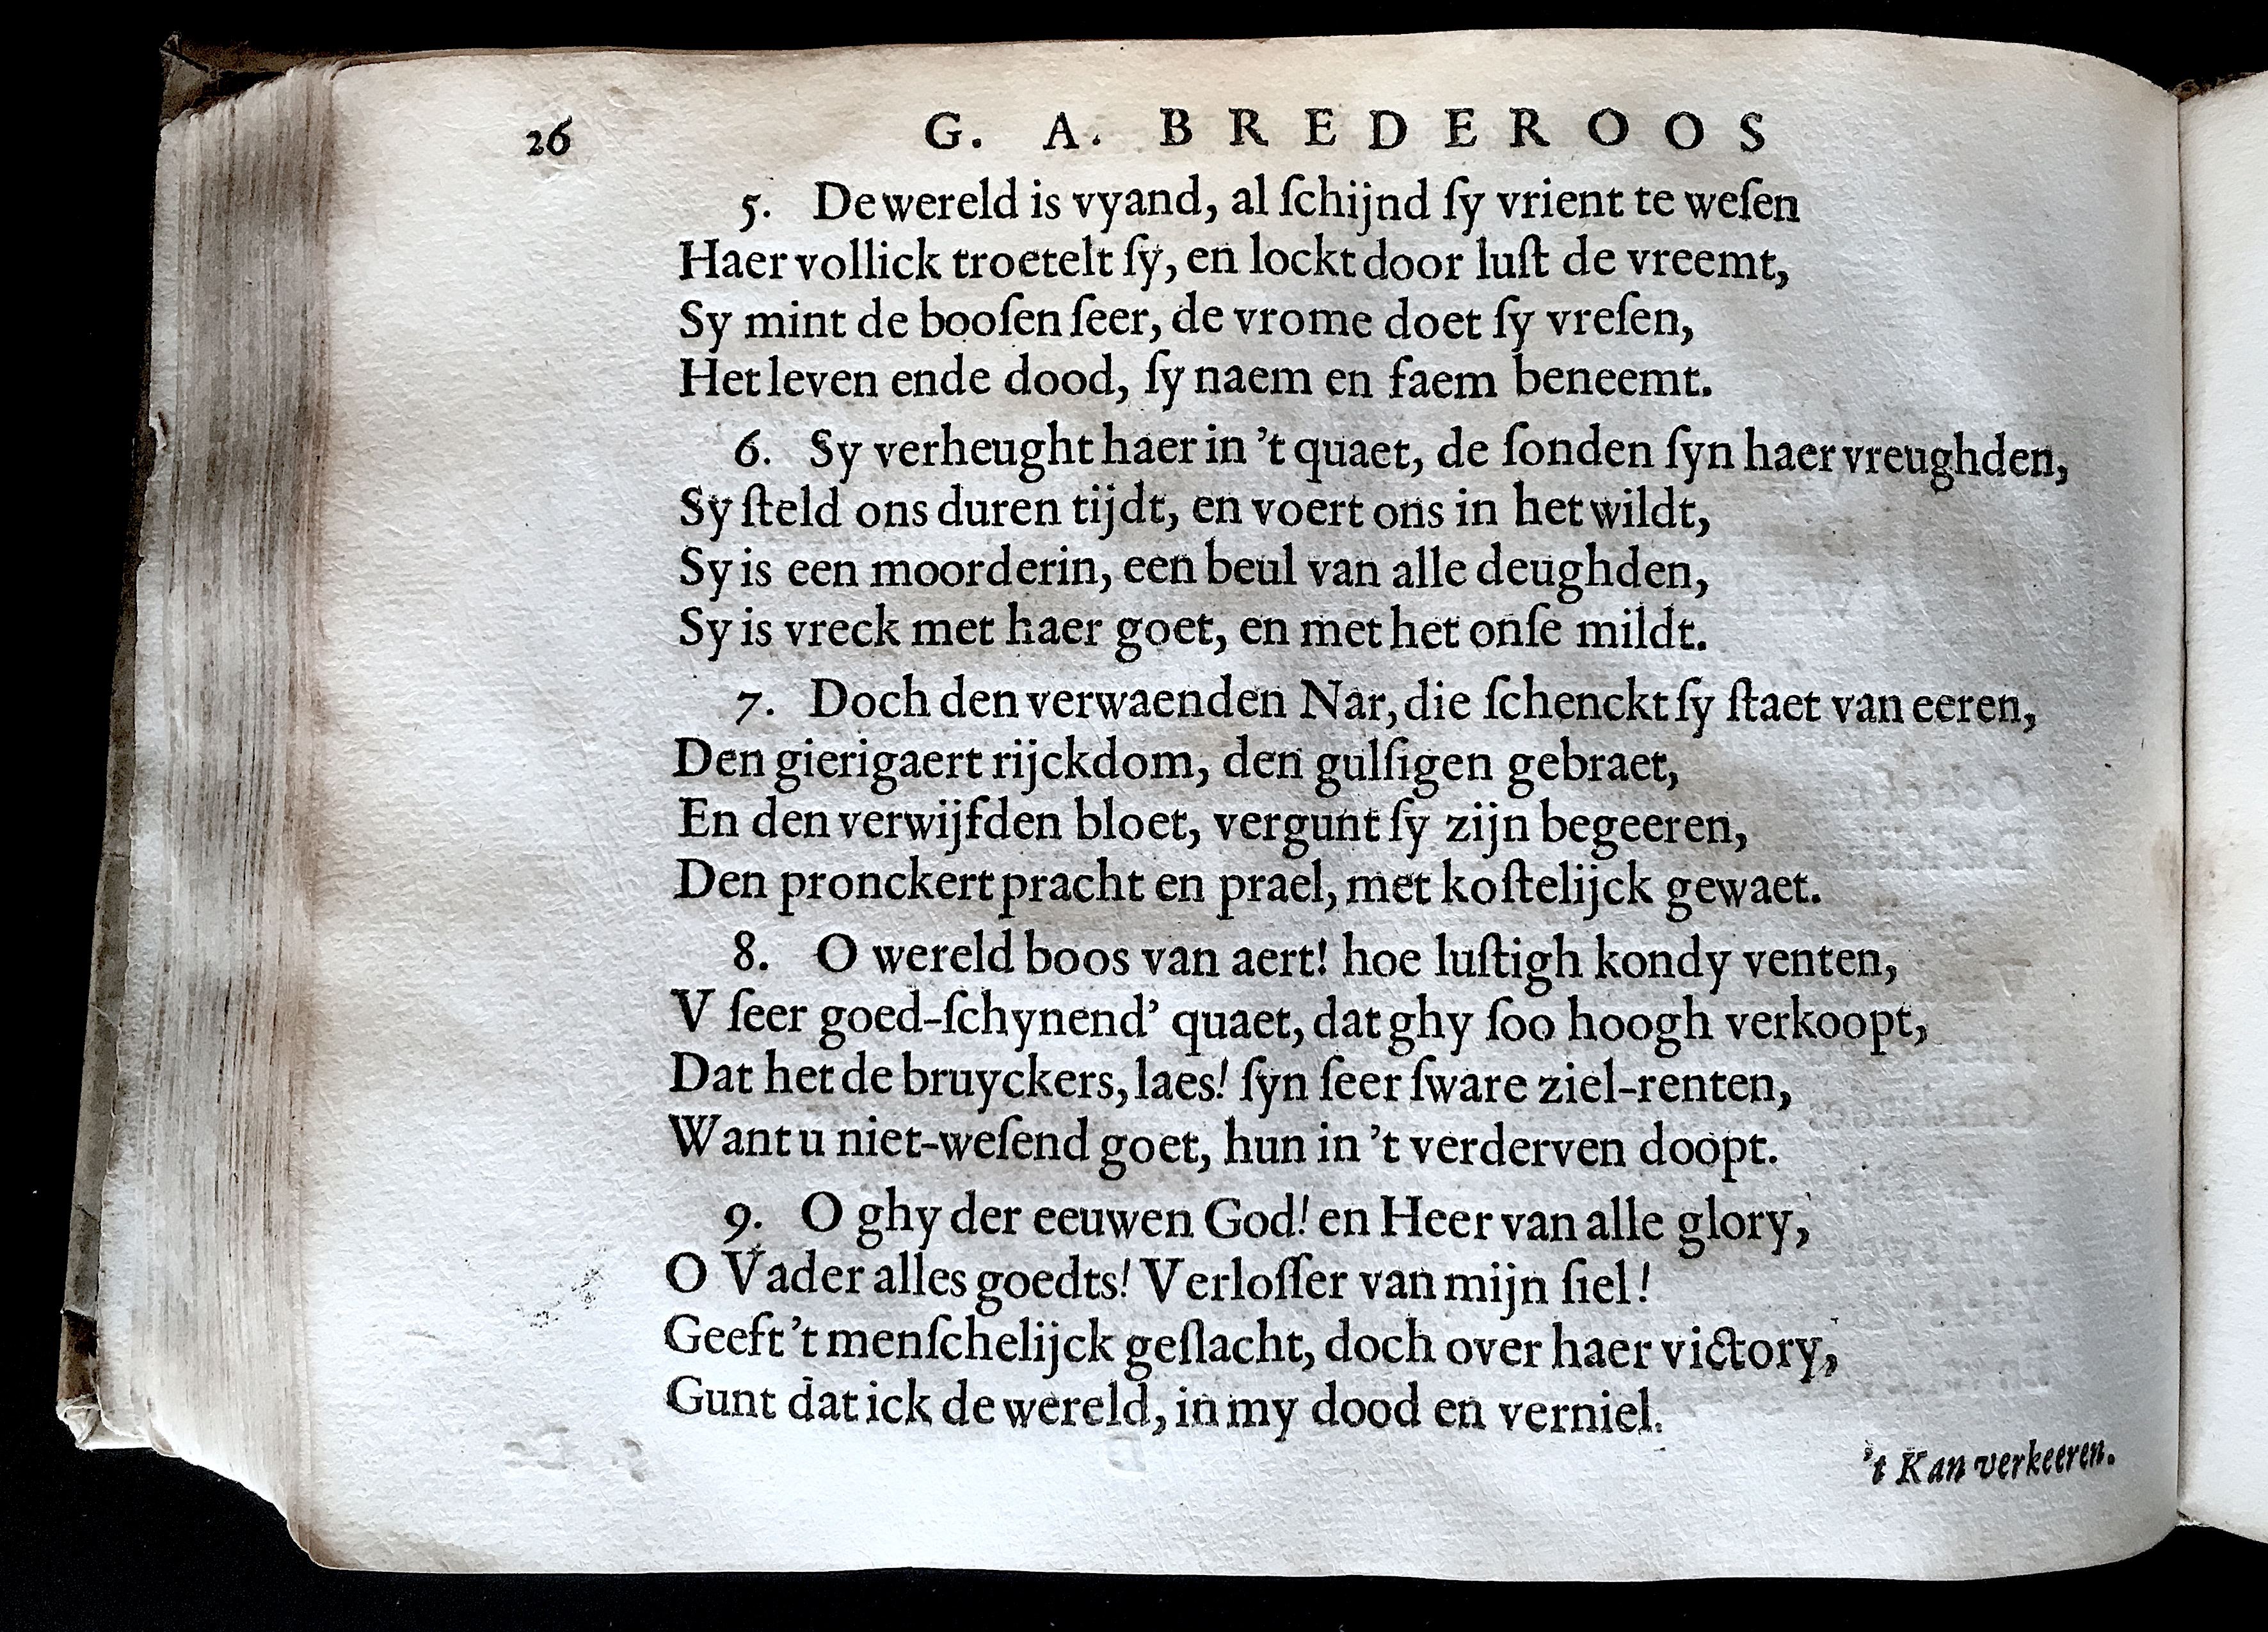 26 G. A. BREDEROOS
5. De wereld is vyand, al ſchijnd ſy vrient te weſen
Haer vollick troetelt ſy, en lockt door luſt de vreemt,
Sy mint de booſen ſeer, de vrome doet ſy vreſen,
Het leven ende dood, ſy naem en faem beneemt.
6. Sy verheught haer in 't quaet, de ſonden ſyn haer vreughden,
Sy ſteld ons duren tijdt, en voert ons in het wildt,
Sy is een moorderin, een beul van alle deughden,
Sy is vreck met haer goet, en met het onſe mildt.
7. Doch den verwaenden Nar, die ſchenckt ſy ſtaet van eeren,
Den gierigaert rijckdom, den gulſigen gebraet,
En den verwijfden bloet, vergunt ſy zijn begeeren,
Den pronckert pracht en prael, met koſtelijck gewaet.
8. O wereld boos van aert! hoe luſtigh kondy venten,
V ſeer goed-ſchynend' quaet, dat ghy ſoo hoogh verkoopt,
Dat het de bruyckers, laes! ſyn ſeer ſware ziel-renten,
Want u niet-weſend goet, hun in 't verderven doopt.
9. O ghy der eeuwen God! en Heer van alle glory,
O Vader alles goedts! Verloſſer van mijn ſiel!
Geeft 't menſchelijck geſlacht, doch over haer victory,
Gunt dat ick de wereld, in my dood en verniel.
't Kan verkeeren.